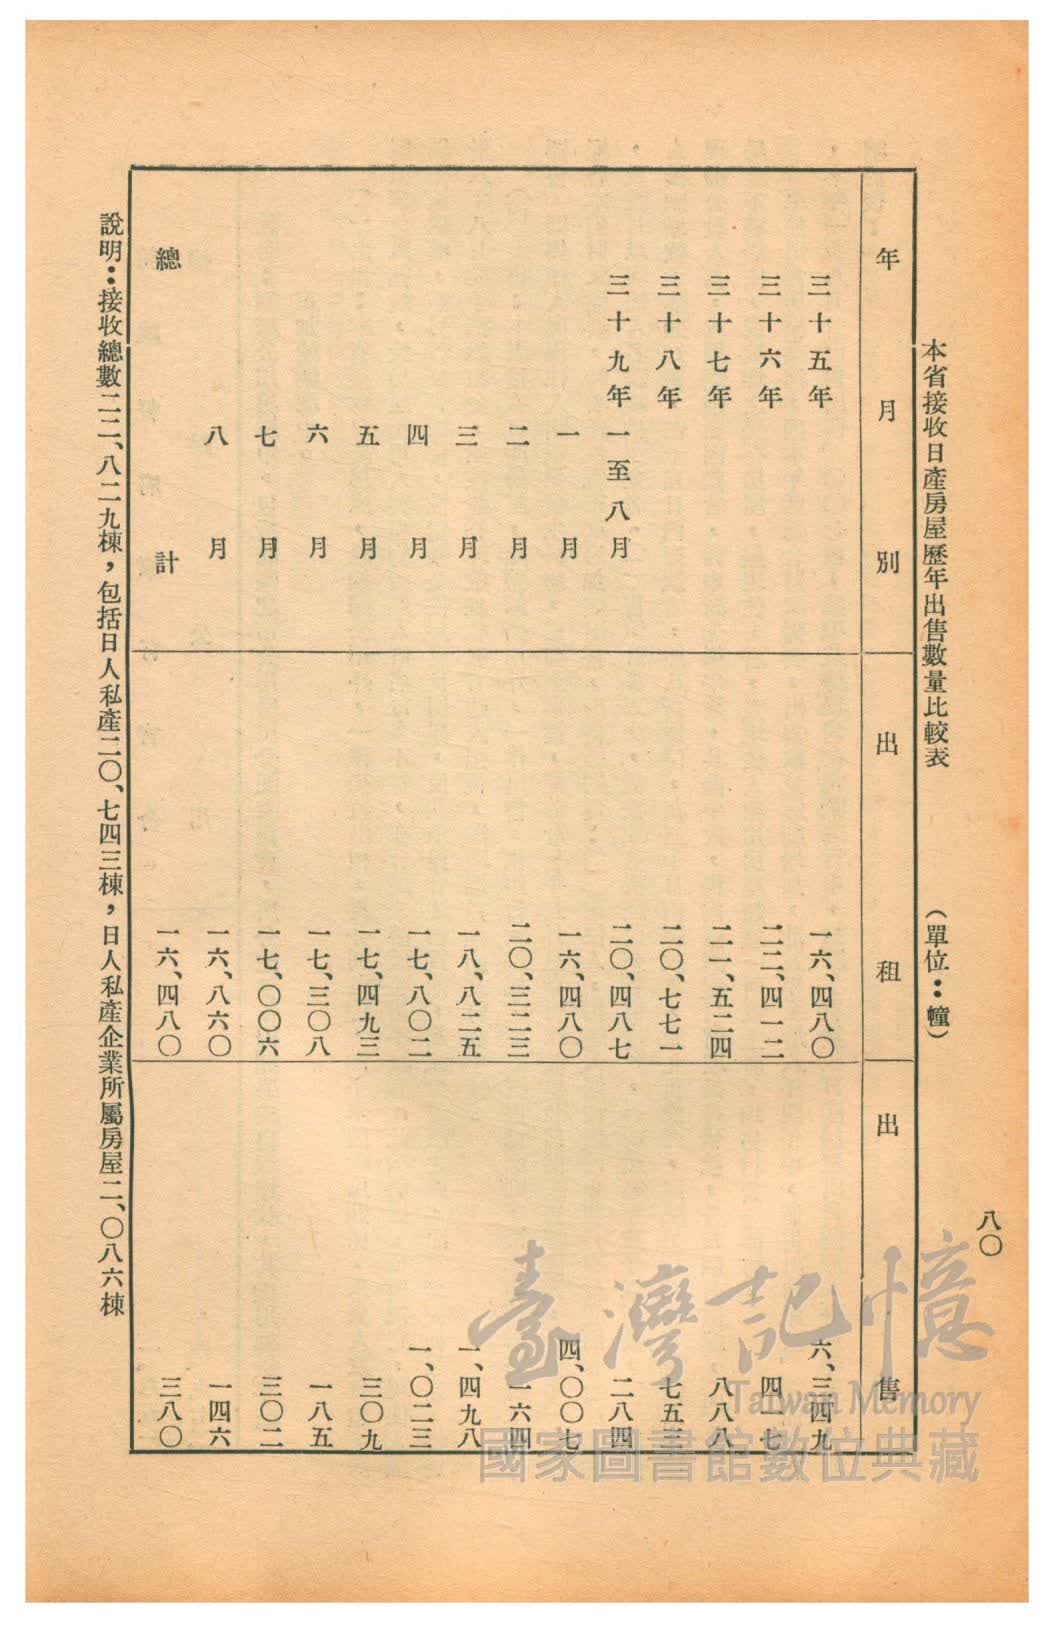 八〇
本省接收日產房屋歷年出售數量比較表　（單位：幢）
年月別　出租　出售
三十五年　一六、四八〇　六、三四九
三十六年　二二、四一二　四一七
三十七年　二一、五二四　八八八
三十八年　二〇、七七一　七五三
三十九年一至八月　二〇、四八七　二八四
一月　一六、四八〇　四、〇〇七
二月　二〇、三二三　一六四
三月　一八、八二五　一、四九八
四月　一七、八〇二　一、〇二三
五月　一七、四九三　三〇九
六月　一七、三〇八　一八五
七月　一七、〇〇六　三〇二
八月　一六、八六〇　一四六
總計　一六、四八〇　三八〇
說明：接收總數二二、八二九棟，包括日人私產二〇、七四三棟，日人私產企業所屬房屋二、〇八六棟
臺灣記憶
Taiwan Memory
國家圖書館數位典藏